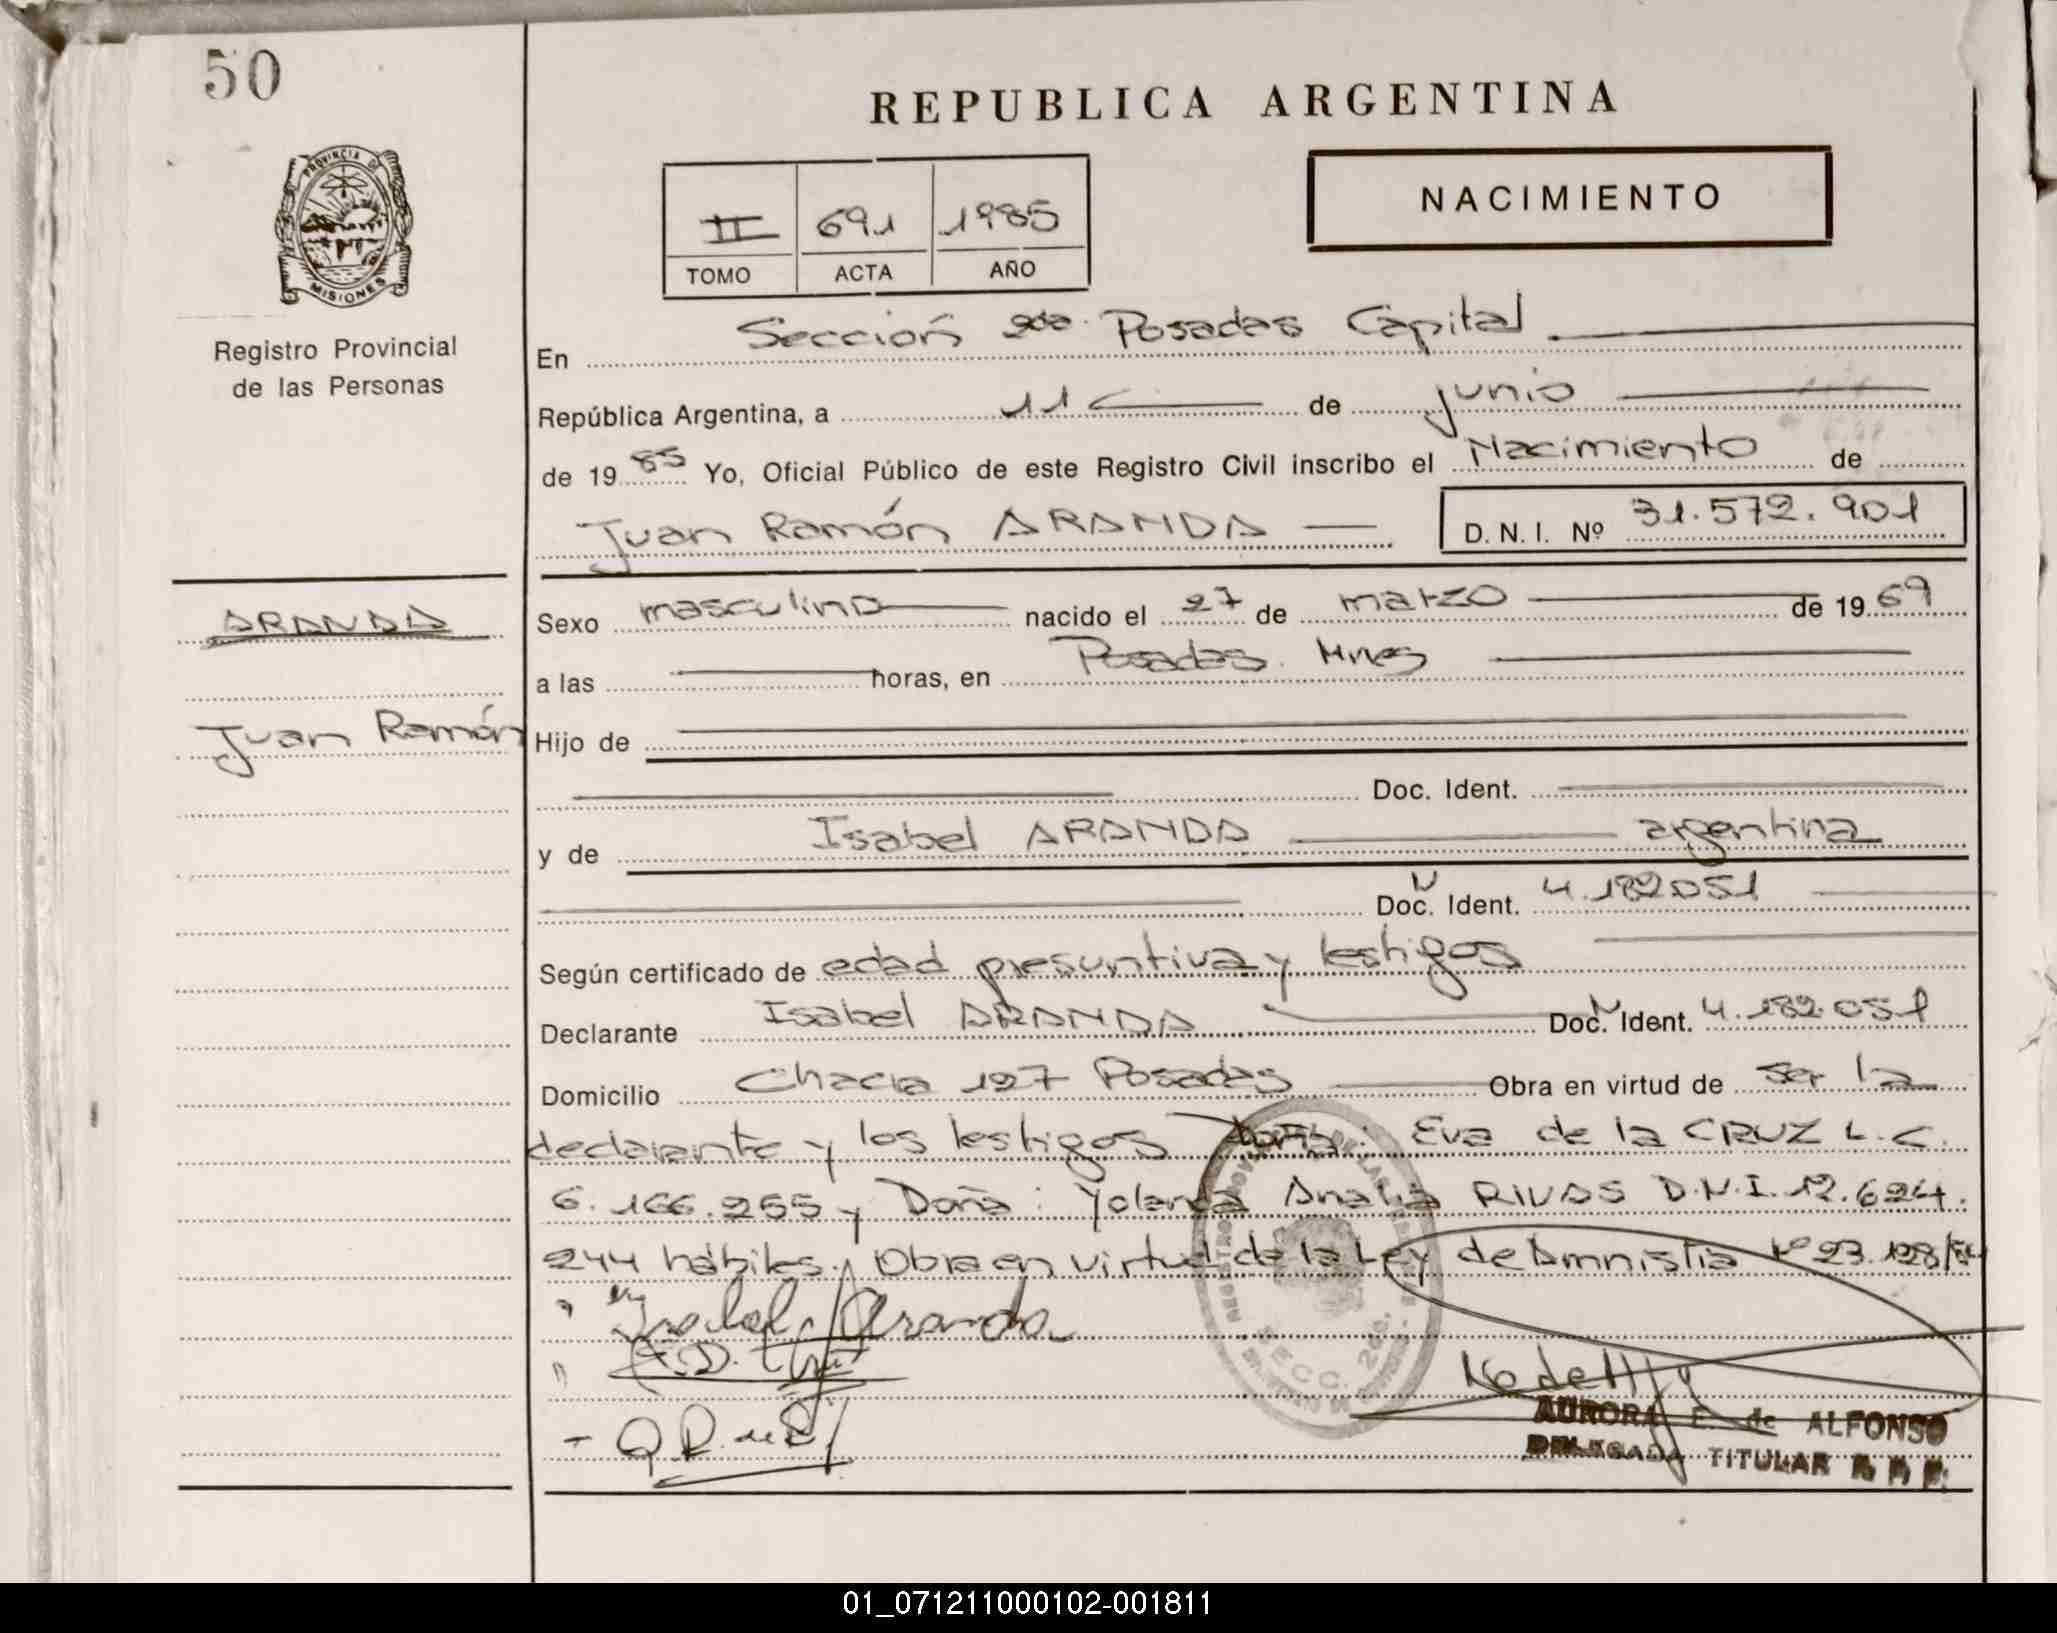 50
REPUBLICA ARGENTINA
PROVINCIA DE
MISIONES
II 691 1985
TOMO ACTA AÑO
NACIMIENTO
Registro Provincial
de las Personas
En Sección 2da. Posadas Capital
República Argentina, a 11 de junio
de 1985 Yo, Oficial Público de este Registro Civil inscribo el Nacimiento de
Juan Ramón ARANDA D.N.I. Nº 31.572.901
ARANDA
Juan Ramón
Sexo masculino nacido el 27 de marzo de 1969
a las horas, en Posadas. Mnes
Hijo de
Doc. Ident.
y de Isabel ARANDA argentina
Doc. Ident. 4.182051
Según certificado de edad presuntiva y testigos
Declarante Isabel ARANDA Doc. Ident. 4.182.051
Domicilio Chacra 127 Posadas Obra en virtud de ser la
declarante y los testigos Doña: Eva de la CRUZ L.C.
6.166.255 y Doña: Yolanda Analia RIVAS D.N.I. 12.624.
244 hábiles. Obra en virtud de la Ley de Amnistia Nº 23.128/84
Isabel Aranda
SECC. 2da.
AURORA E. de ALFONSO
DELEGADA TITULAR R. P. P.
01_071211000102-001811